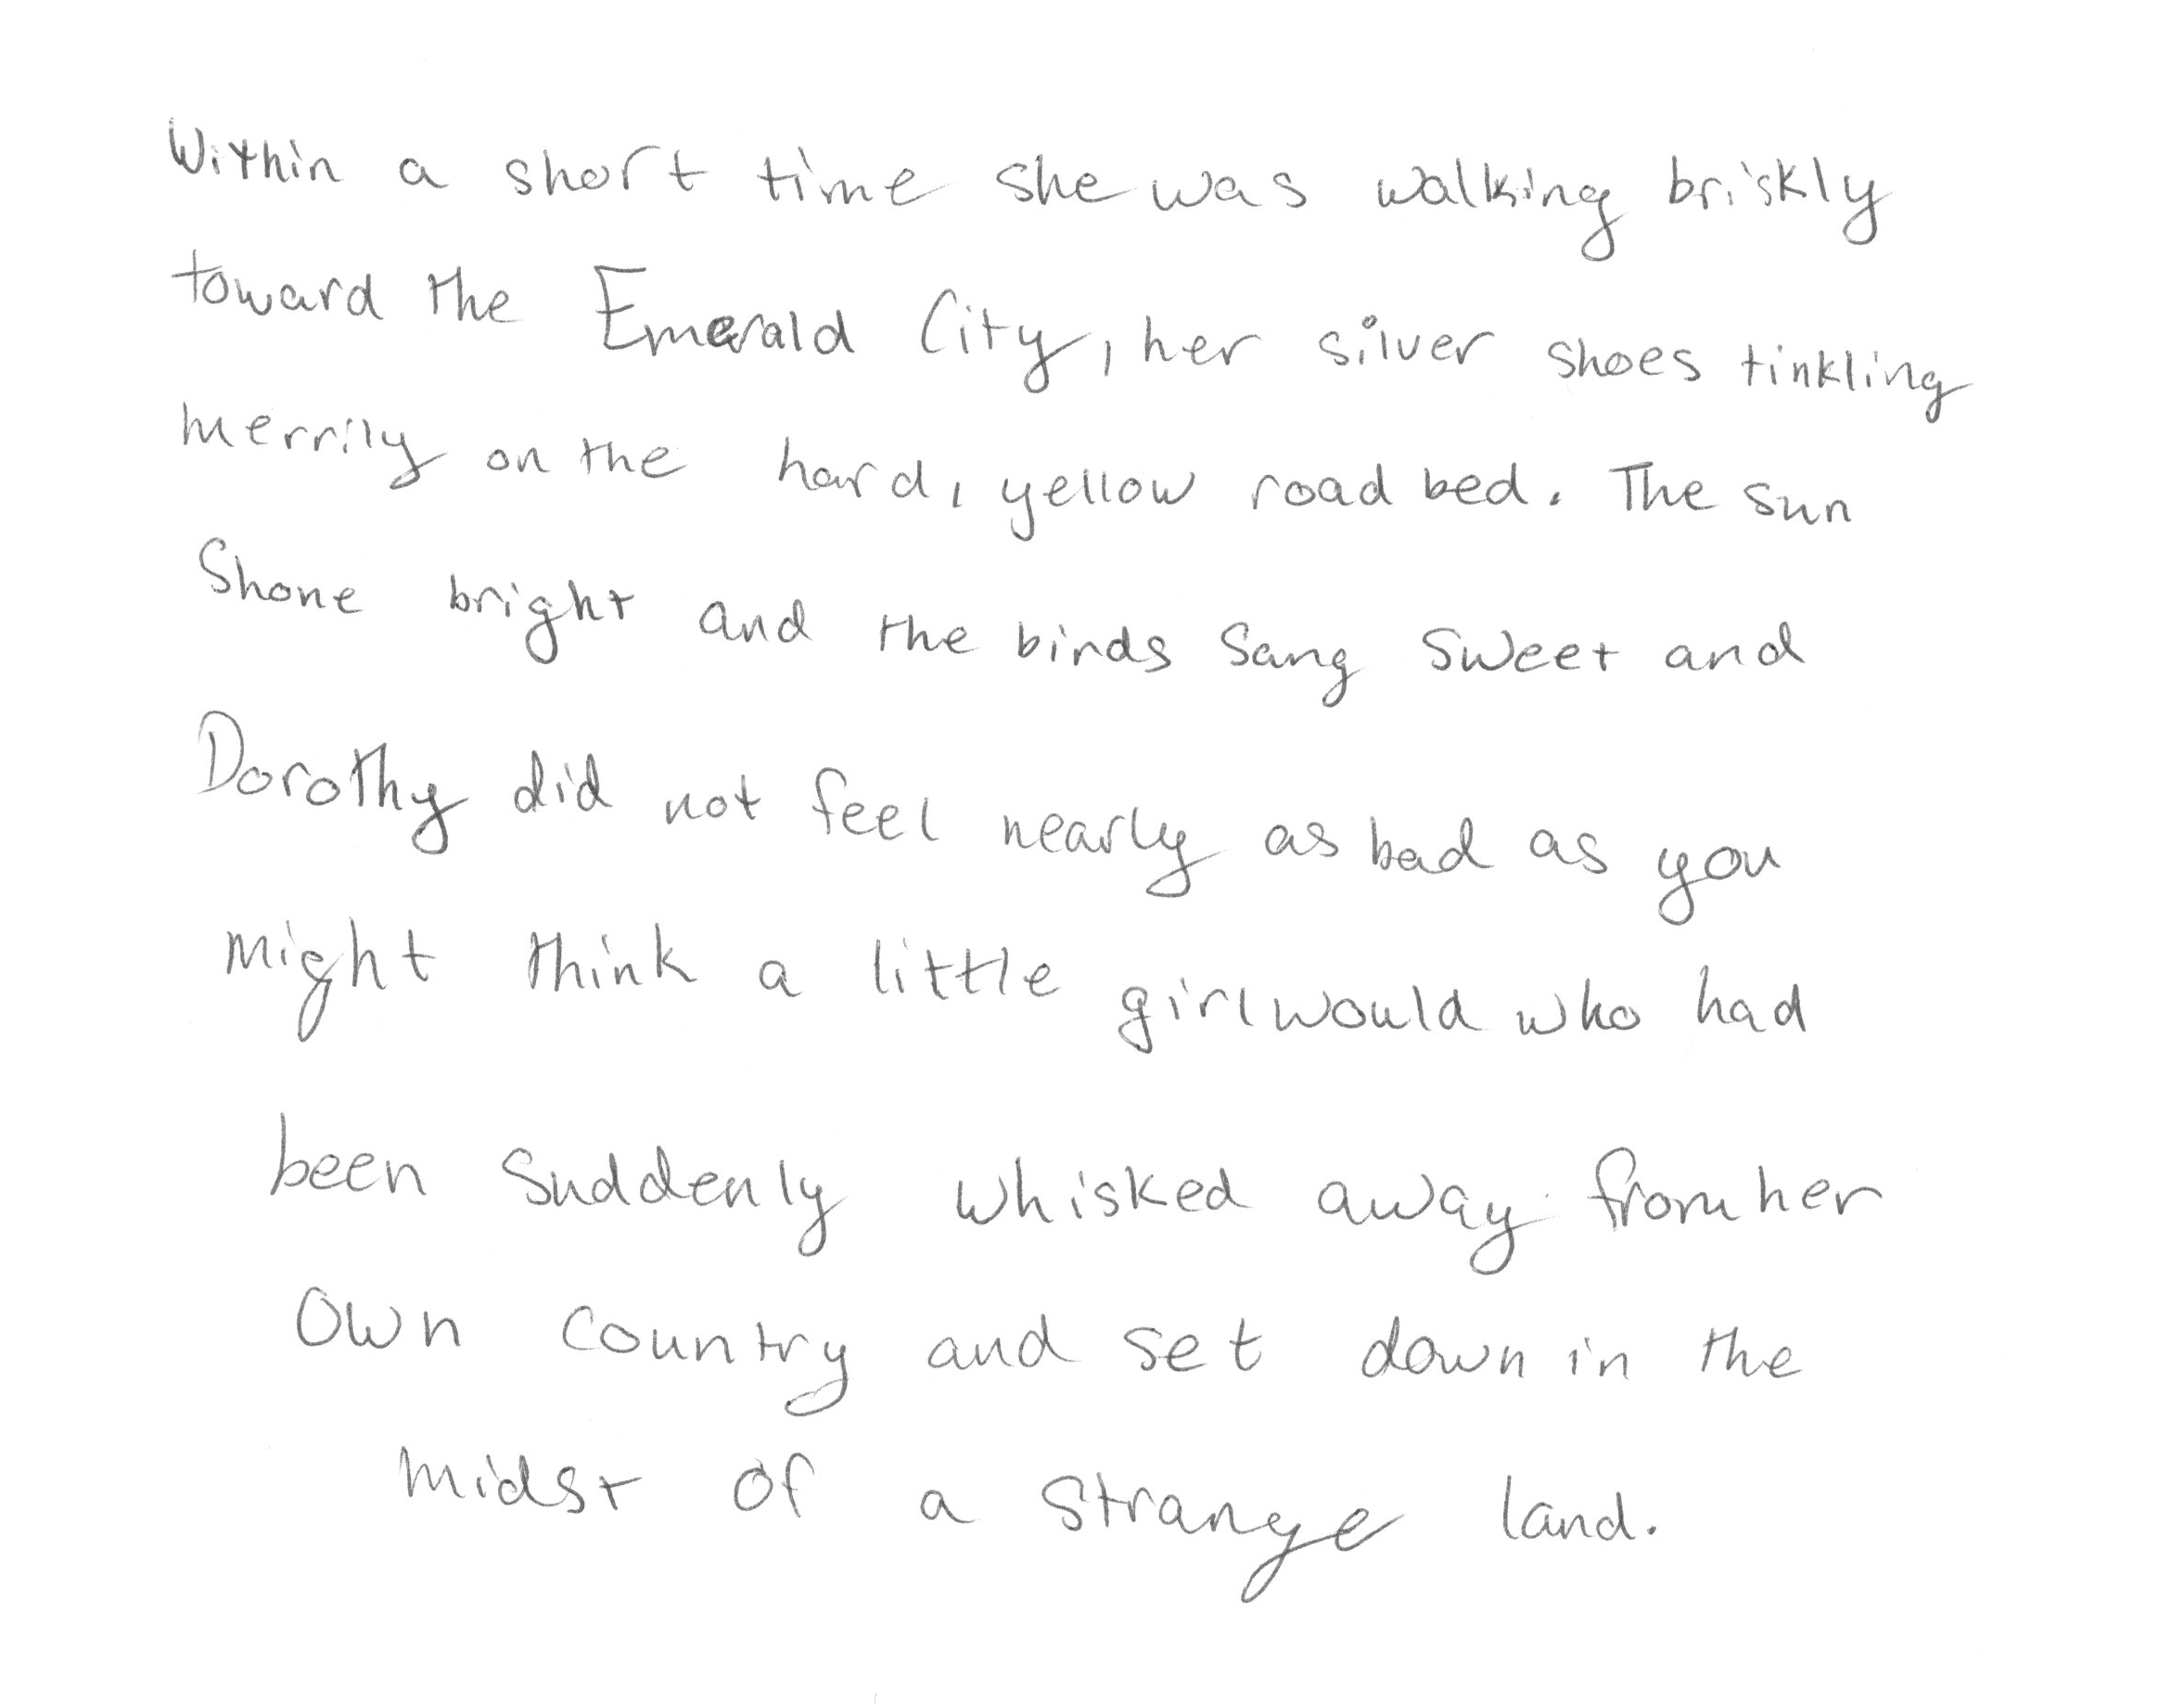 Within a short time she was walking briskly
toward the Emerald City, her silver shoes tinkling
merrily on the hard, yellow road bed. The sun
Shone bright and the birds Sang Sweet and
Dorothy did not feel nearly as bad as you
might think a little girl would who had
been Suddenly whisked away from her
own country and set down in the
midst of a Strange land.